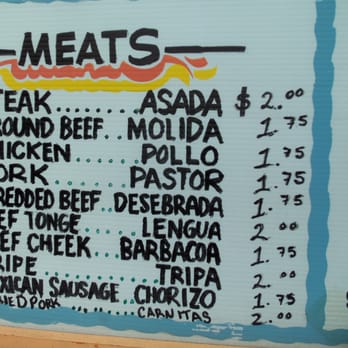 MEATS
TEAK........ASADA $2.00
ROUND BEEF..MOLIDA 1.75
HICKEN.......POLLO 1.75
ORK..........PASTOR 1.75
REDDED BEEF DESEBRADA 1.75
EEF TONGE....LENGUA 2.00
EEF CHEEK...BARBACOA 1.75
RIPE...........TRIPA 2.00
EXICAN SAUSAGE..CHORIZO 1.75
IED PORK........CARNITAS 2.00